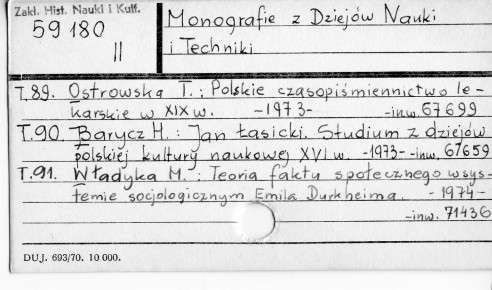 Zakł. Hist. Nauki i Kult.
59 180
II
Monografie z Dziejów Nauki
i Techniki
T.89. Ostrowska T.: Polskie czasopiśmiennictwo le-
karskie w XIX w. -1973- -inw. 67699
T.90. Barycz H.: Jan Łasicki. Studium z dziejów
polskiej kultury naukowej XVI w. -1973- -inw. 67659
T.91. Władyka M.: Teoria faktu społecznego w sys-
temie socjologicznym Emila Durkheima. -1974-
-inw. 71436
DUJ. 693/70. 10 000.